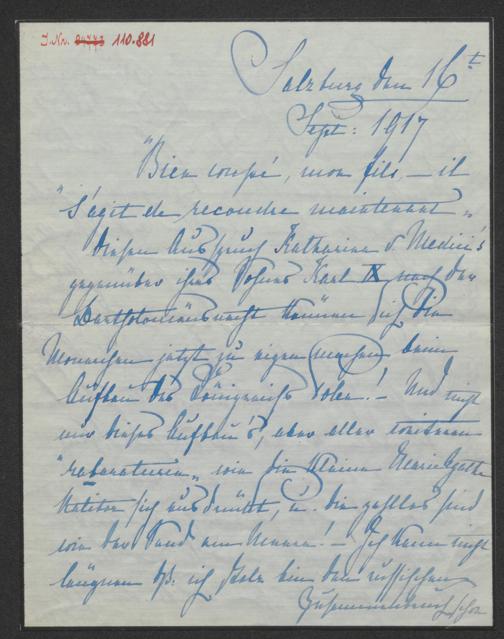 J. Nr. 110.881
Salzburg den 16t
Sept: 1917
"Bien coupé, mon fils, – il
"s'agit de recoudre maintenant"
diesen Ausspruch Katharina v Medici's
gegenüber ihres Sohnes Karl IX nach der
Bartholomäusnacht können sich die
Monarchen jetzt zu eigen machen beim
Aufbau des Königreichs Polen! – Und nicht
nur dieses Aufbau's, aber aller weiteren
"rabaraturen" wie die kleine
sich ausdrückt, u. die zahllos sind
wie der Sand am Meere! – Ich kann nicht
läugnen dß. ich stolz bin den russischen
Zusammenbruch schon